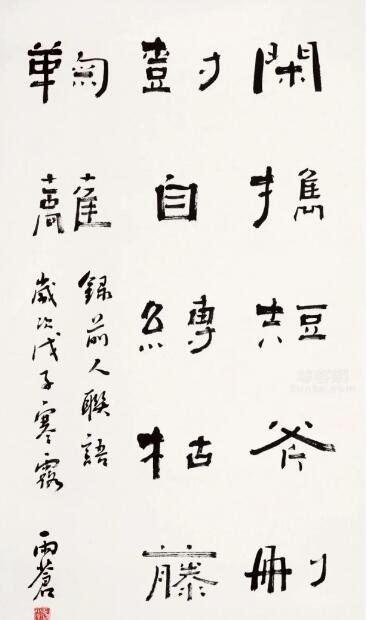 閑攜短斧刪
尌自縛枯藤
錄前人聯語
歲次戊子寒露 雨蒼